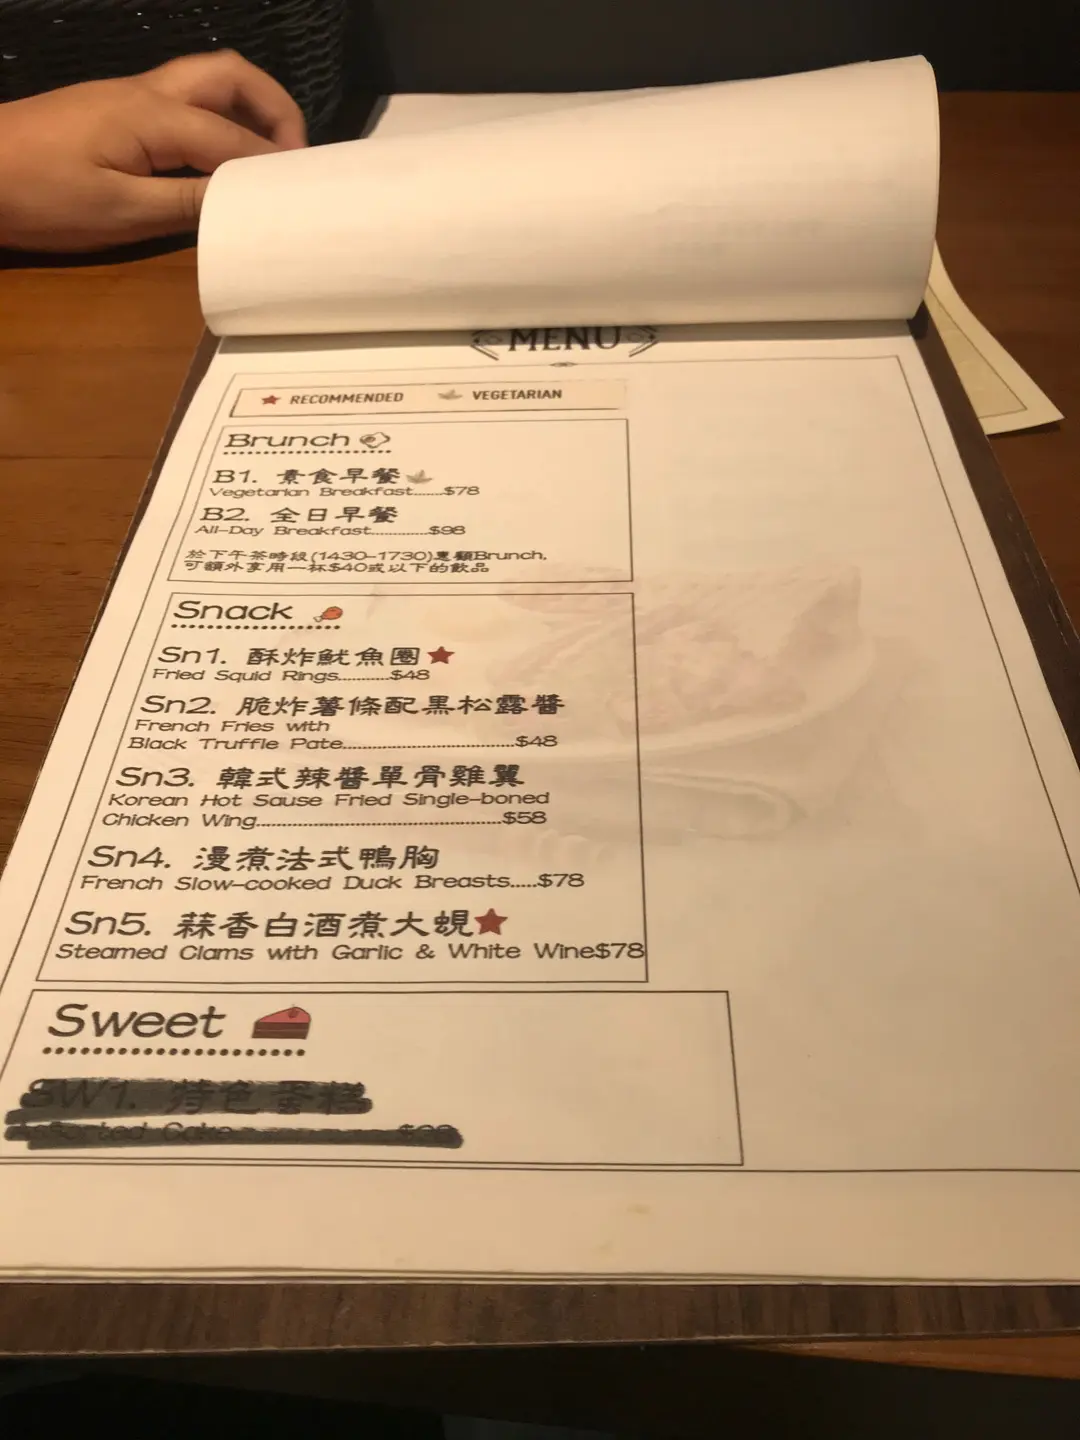 MENU
RECOMMENDED VEGETARIAN
Brunch
B1. 素食早餐
Vegetarian Breakfast.......$78
B2. 全日早餐
All-Day Breakfast.............$98
於下午茶時段(1430-1730)惠顧Brunch,
可額外享用一杯$40或以下的飲品
Snack
Sn1. 酥炸魷魚圈
Fried Squid Rings...........$48
Sn2. 脆炸薯條配黑松露醬
French Fries with
Black Truffle Pate.....................................$48
Sn3. 韓式辣醬單骨雞翼
Korean Hot Sause Fried Single-boned
Chicken Wing..................................................$58
Sn4. 漫煮法式鴨胸
French Slow-cooked Duck Breasts.....$78
Sn5. 蒜香白酒煮大蜆
Steamed Clams with Garlic & White Wine$78
Sweet
SW1. 特色蛋糕
Assorted Cake